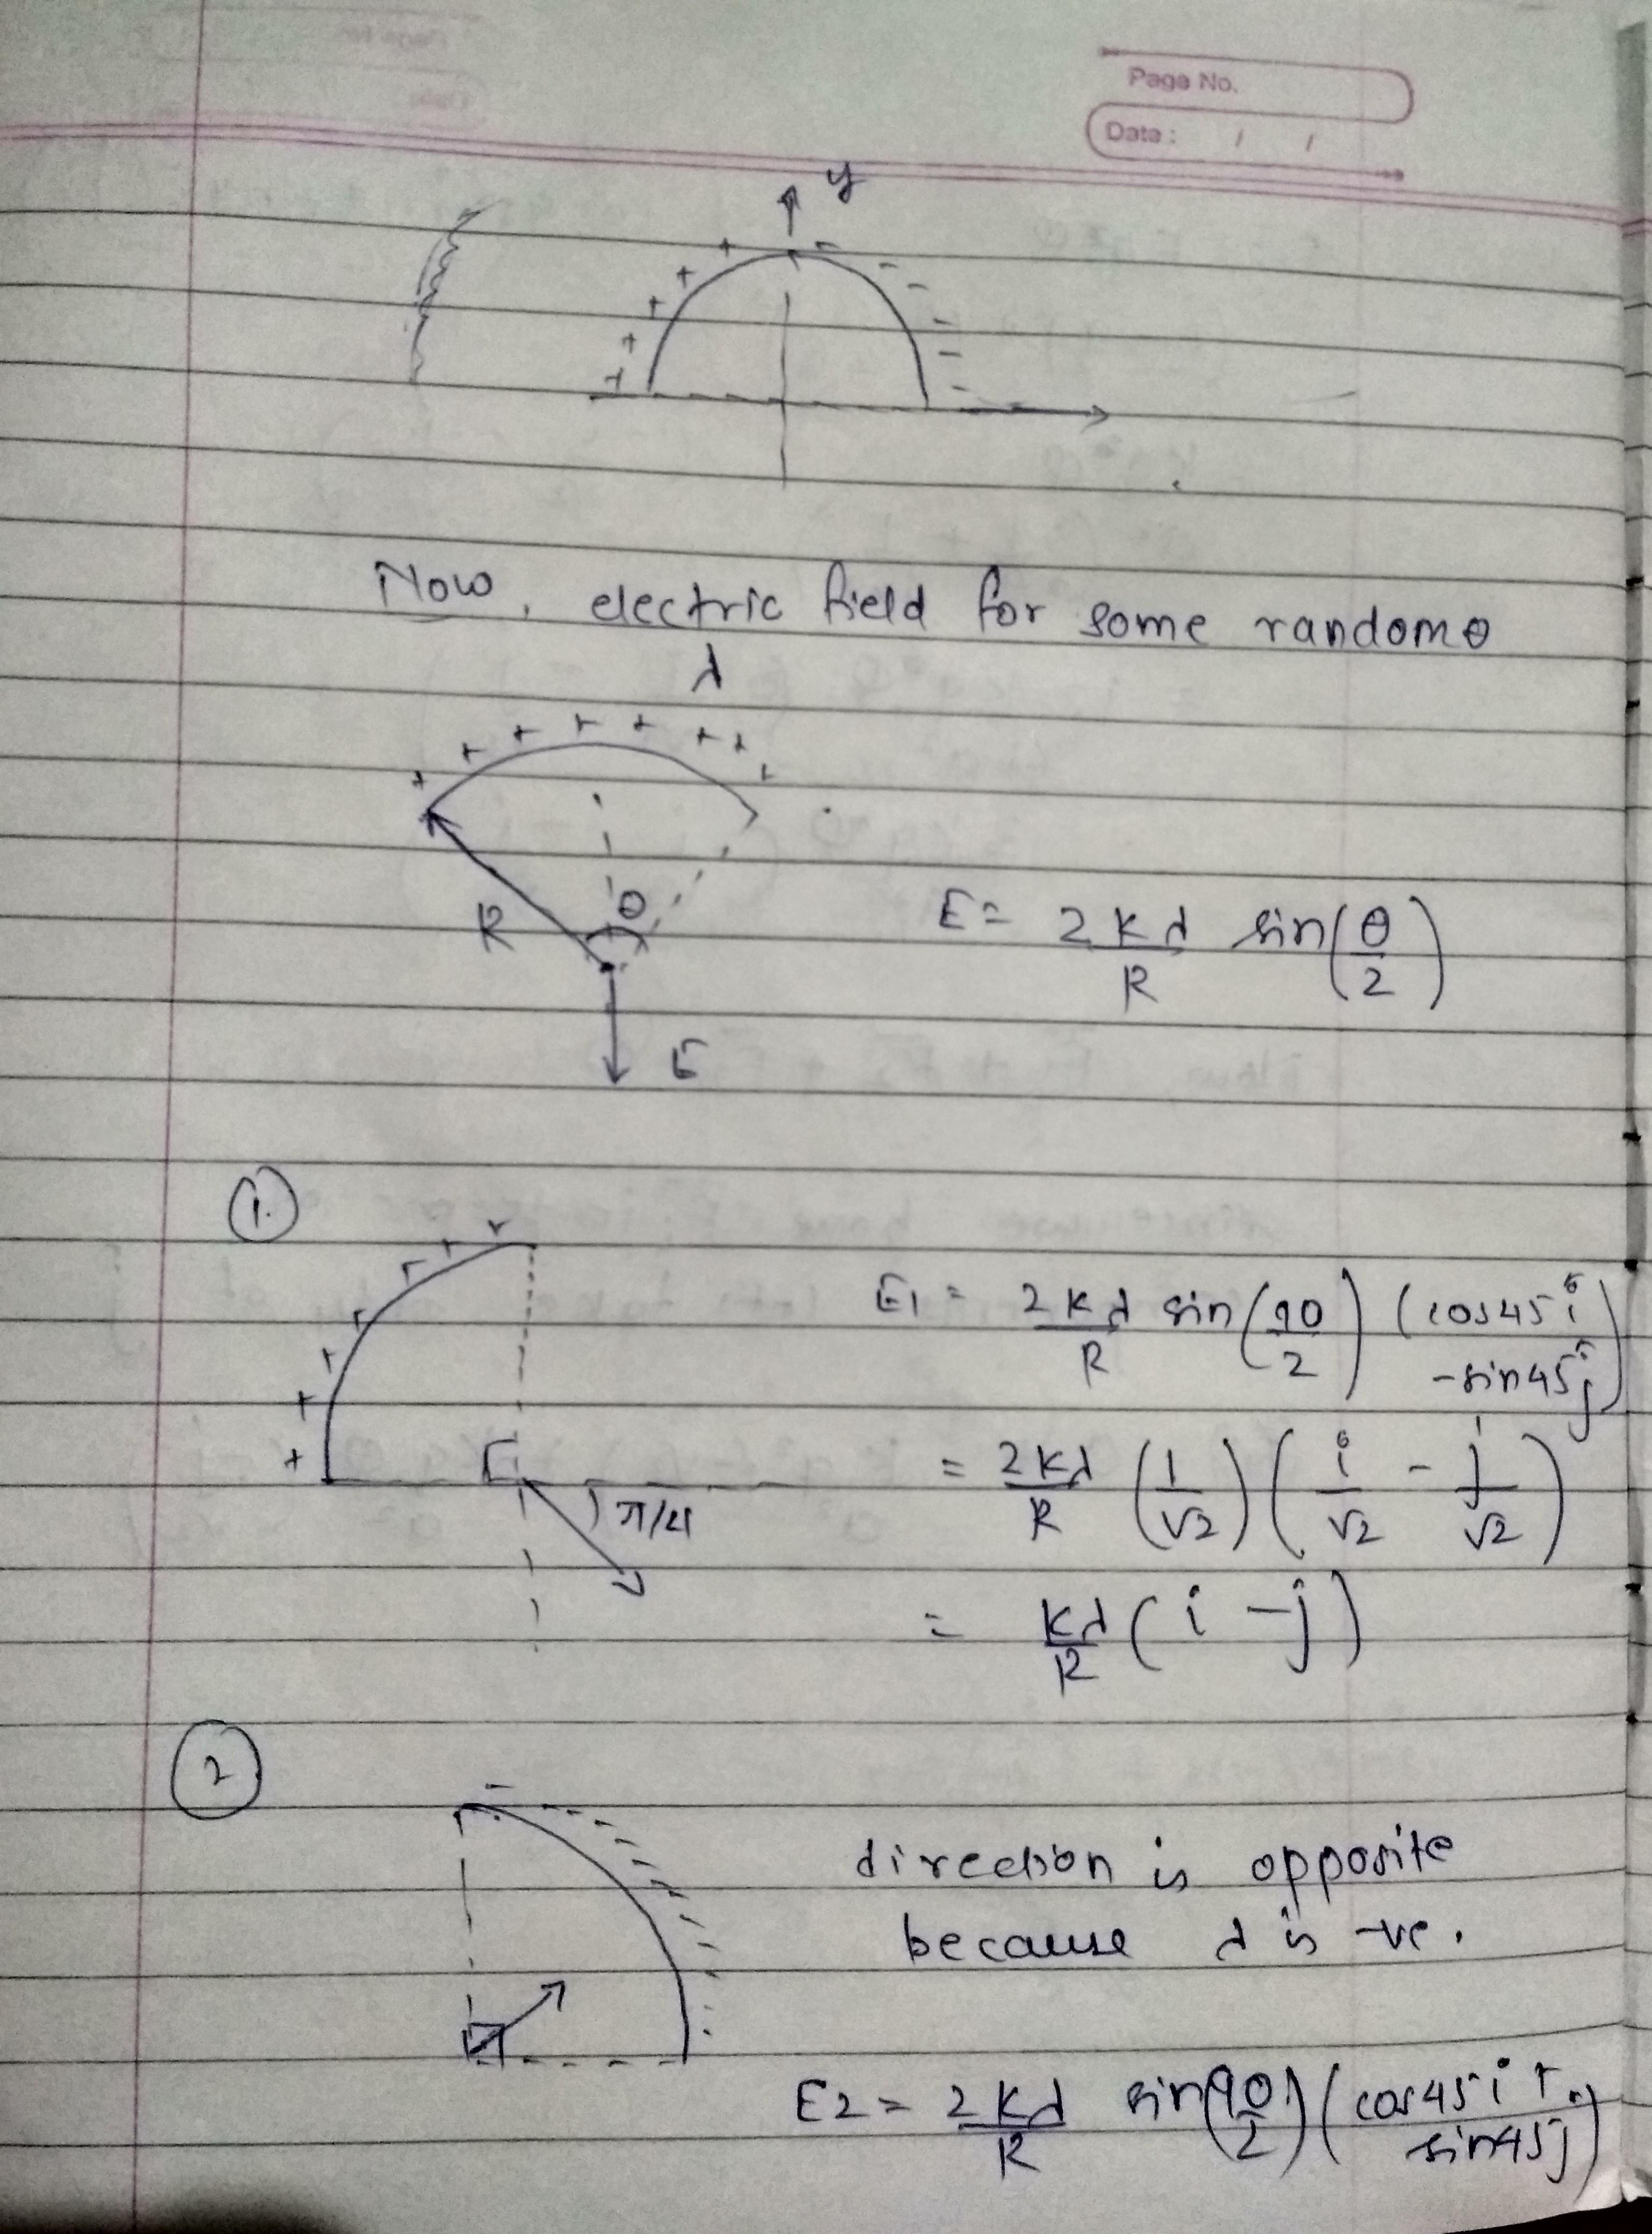 Page No.
Date : / /
y
+ + + + + +
- - - - - -
Now, electric field for some random θ
λ
+ + + + + + + +
θ
R
E = 2Kλ/R sin(θ/2)
E
1.
+ + + + + + +
E1 = 2Kλ/R sin(90/2) (cos45 i - sin45 j)
= 2Kλ/R (1/√2) (i/√2 - j/√2)
π/4
= Kλ/R (i - j)
2
direction is opposite
because λ is -ve.
E2 = 2Kλ/R sin(90/2) (cos45 i + sin45 j)